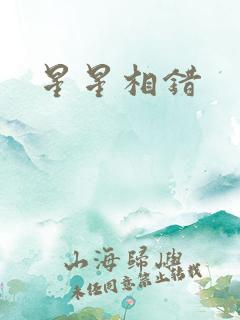 星星相错
山海歸嶼
未经同意禁止转载